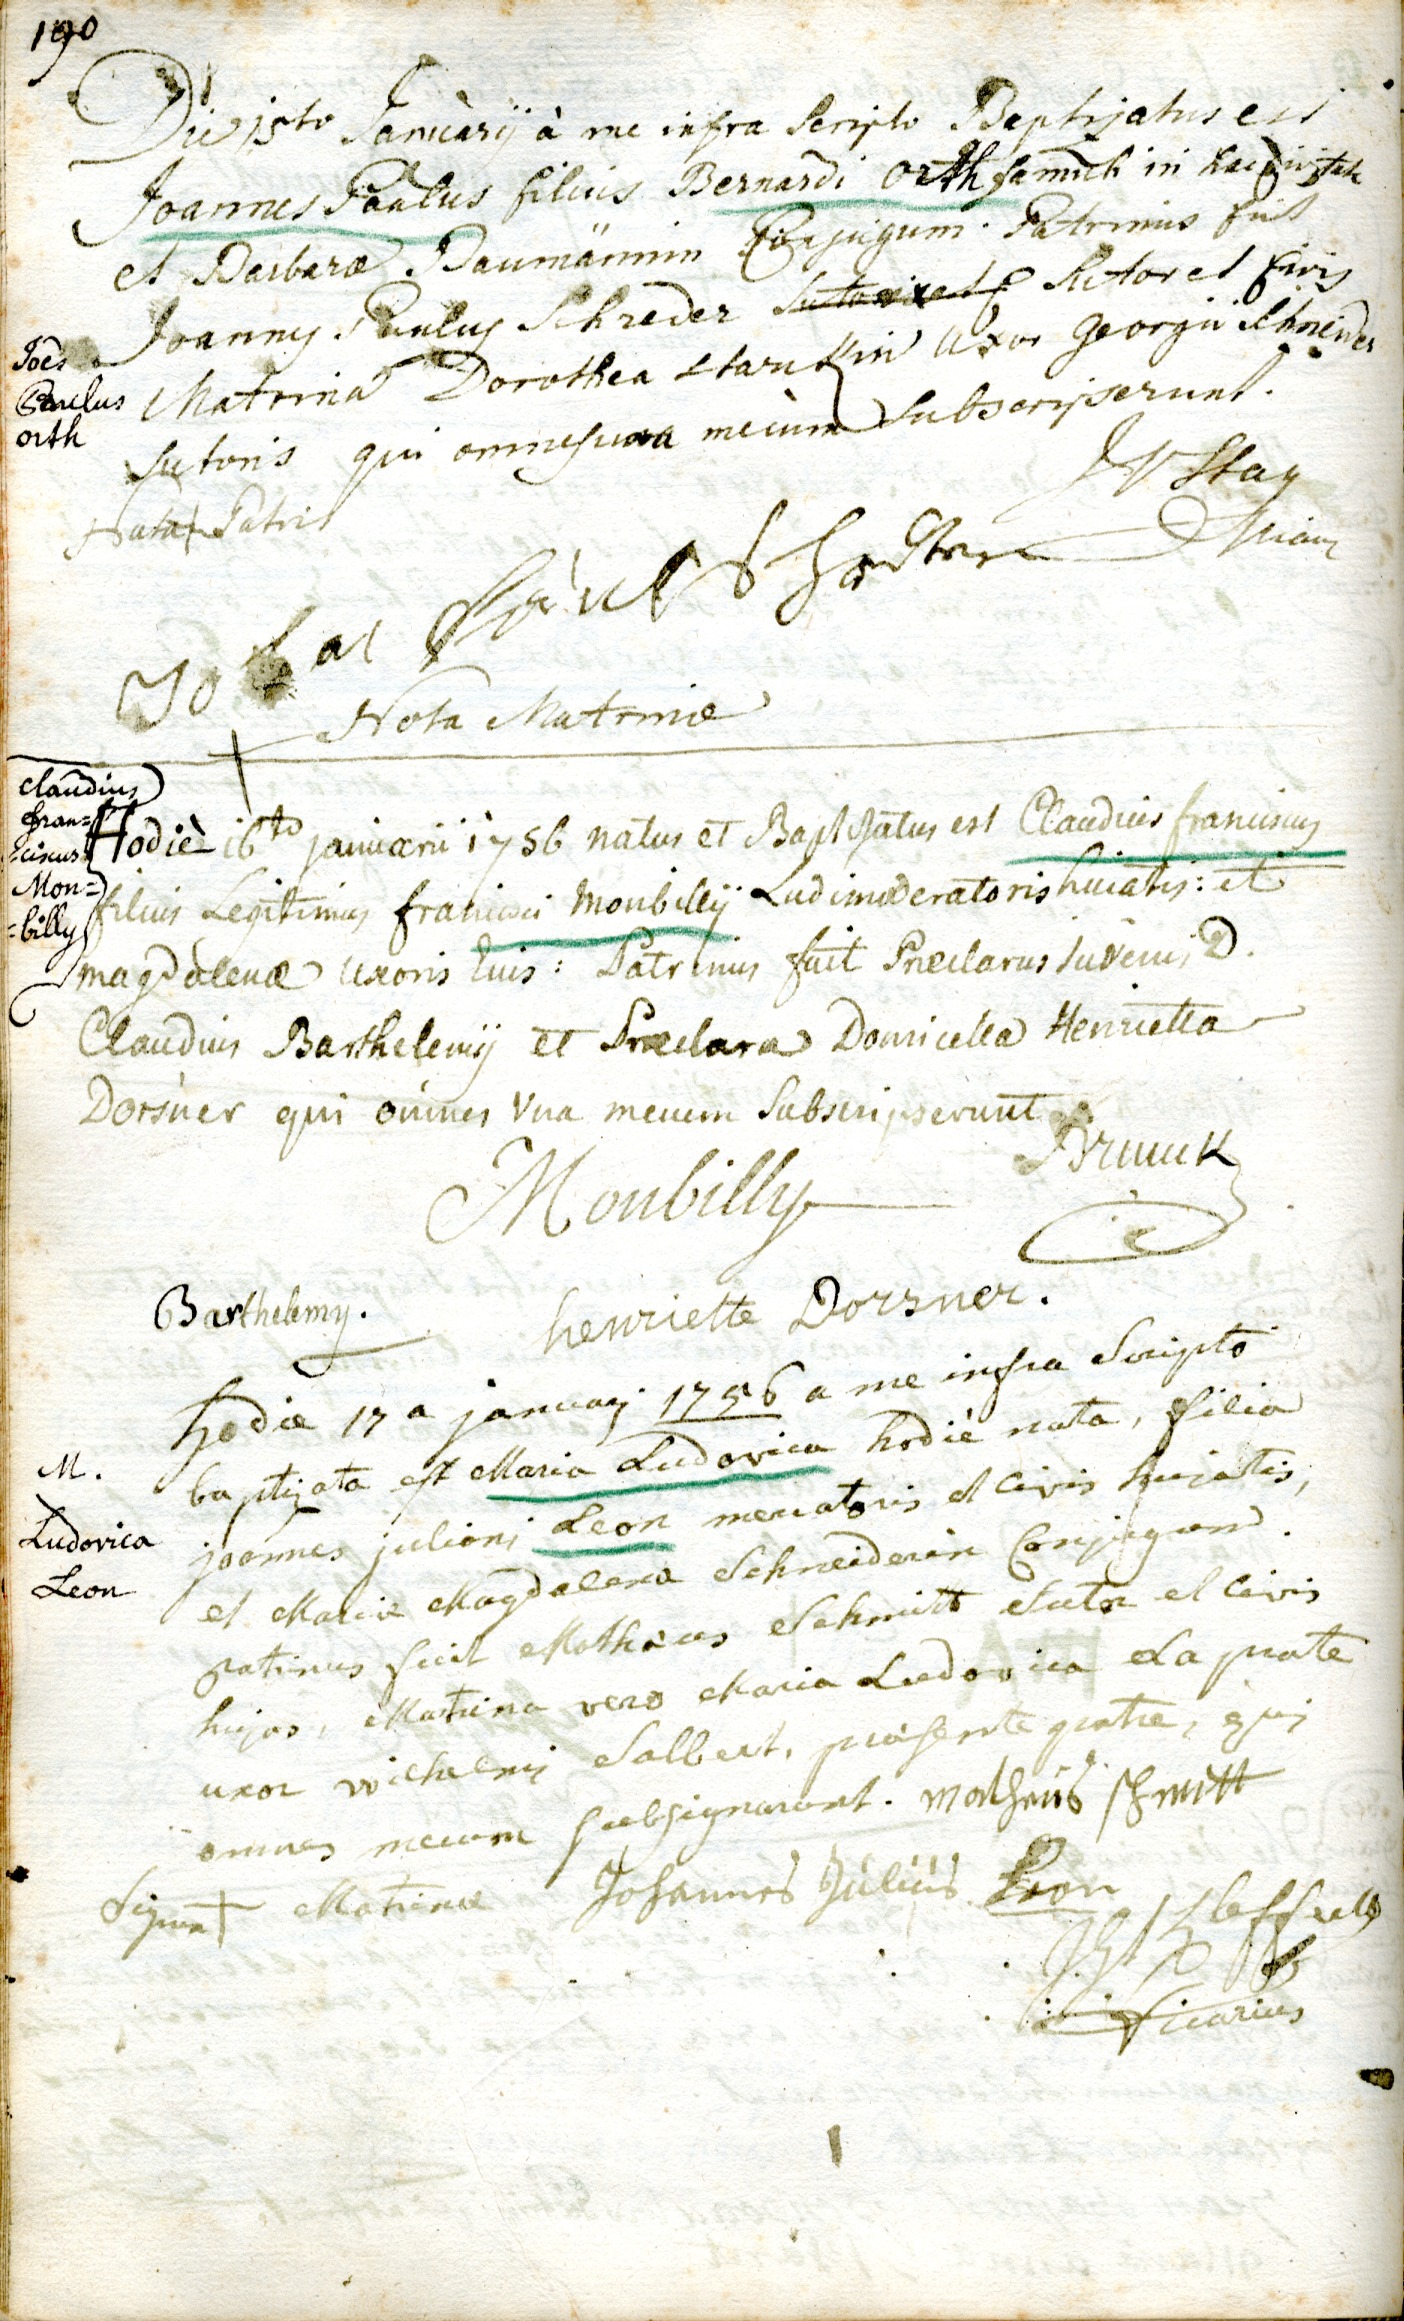 190
Die 15to Januarÿ à me infra scripto Baptizatus est
Joannes Paulus filius Bernardi Orth famuli in hac civitate
et Barbaræ Baumännin Conjugum. Patrinus fuit
Joannes Paulus Schreder Sutor et Civis
Matrina Dorothea Starukin uxor Georgii Schneider
Sutoris qui omnes una mecum subscripserunt.
Joes
Paulus
orth
Nota + Patris
Paul
Nota Matrinæ
+
Claudius
fran=
=ciscus
Mon=
=billy
Hodiè 16to januarii 1756 natus et Baptizatus est Claudius franciscus
filius Legitimus francisci Monbillÿ Ludimoderatoris huiatis: et
magdalenæ uxoris Eius: Patrinus fuit Præclarus Juvenis D.
Claudius Barthelemÿ et Præclara Domicella Henrietta
Dorsner qui omnes Vna mecum Subscripserunt
Brunck
Monbilly
Barthelemy.
henriette Dorsner.
hodie 17a januarj 1756 a me infra Scripto
baptizata est Maria Ludovica hodiè nata, filia
joannes juliani Leon mercatoris et civis hujatis,
et Mariæ Magdalena Schneiderin Conjugum.
M.
Ludovica
Leon
patrinus fuit Mathæus Schmitt Sutor et civis
hujas, Matrina vero Maria Ludovica La prate
uxor wilhelmj Salbert, præsente patre, qui
omnes mecum subsignarunt. Matheus Schmitt
Signum + Matrinæ
Johannes Julius Leon
Vicarius